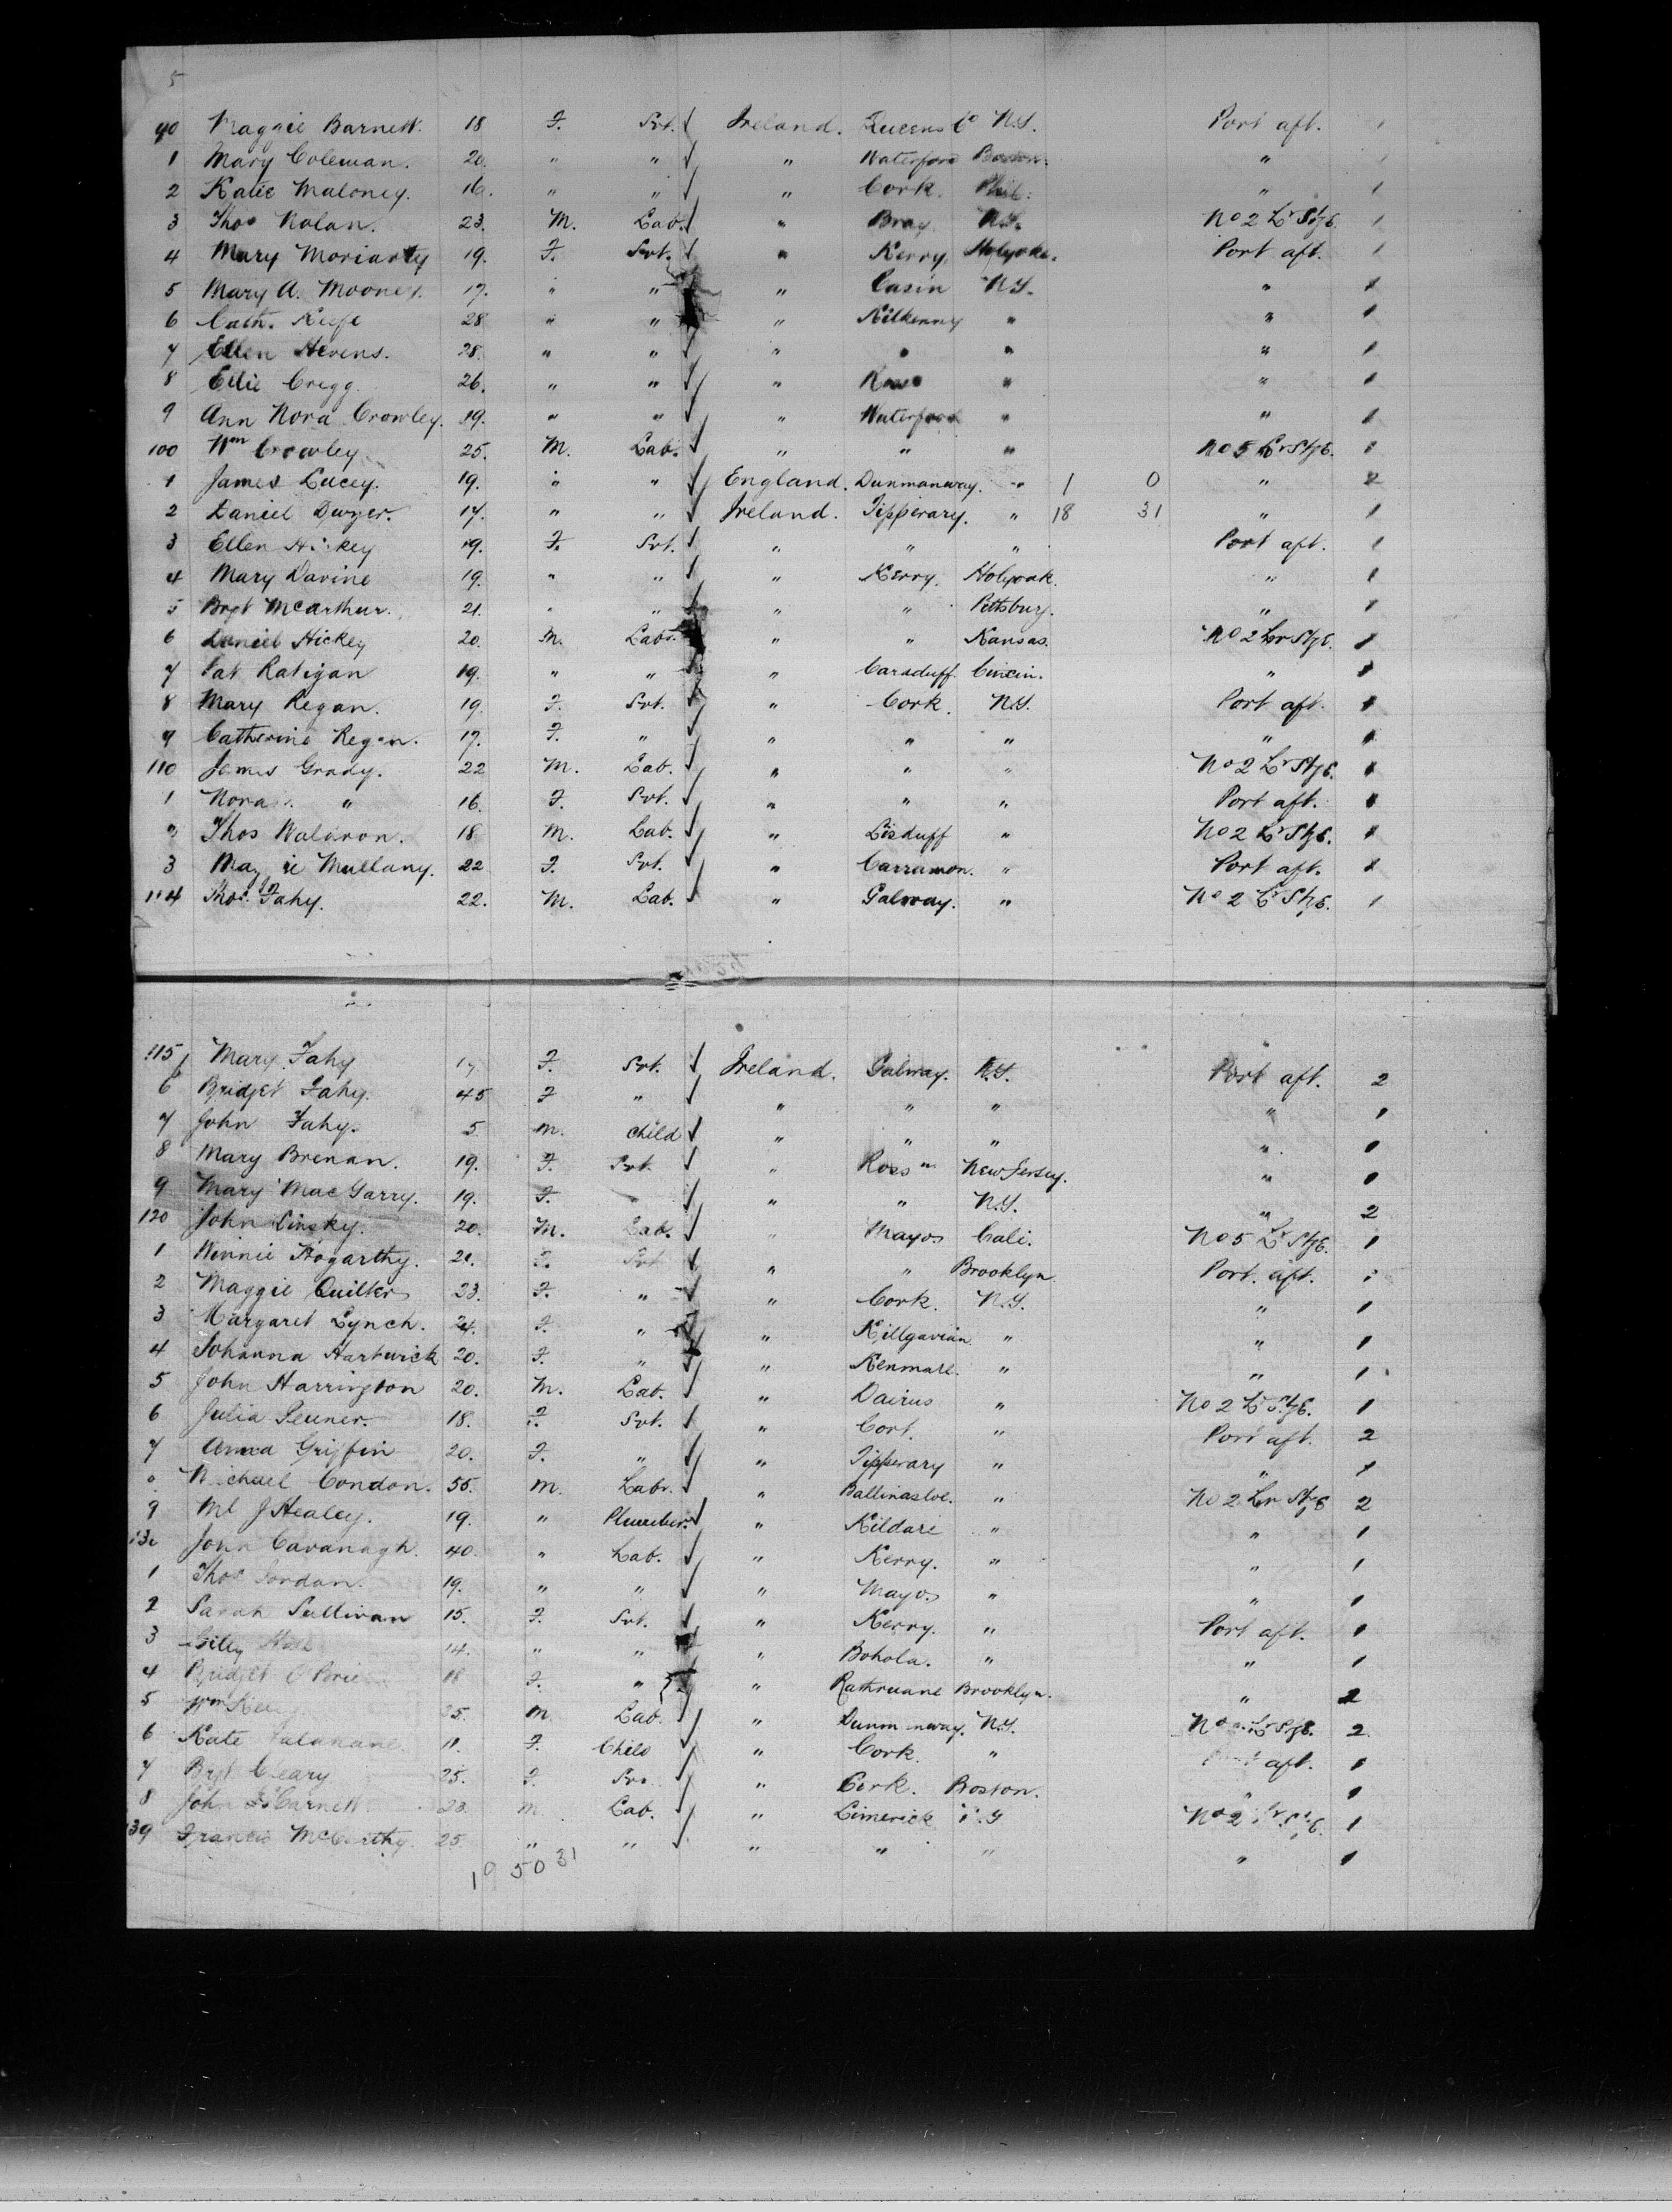 5
90 Maggie Barnett. 18 F. Svt. Ireland. Queens Co N.Y. Port aft. 1
1 Mary Coleman. 20. " " " Waterford Boston. "
2 Katie Maloney. 16. " " " Cork. Phil: " 1
3 Thos Nolan. 23. M. Lab. " Bray N.Y. No 2 Lr Stge. 1
4 Mary Moriarty 19. F. Svt. " Kerry. Holyoke. Port aft. 1
5 Mary A. Mooney. 17. " " " Casin N.Y. " 1
6 Cath. Keefe 28 " " " Kilkenny " " 1
7 Ellen Hevens. 28. " " " " " " 1
8 Ellie Cregg 26. " " " " " 1
9 Ann Nora Crowley. 19. " " " Waterford " " 1
100 Wm Crowley 25. M. Lab. " " " No 5 Lr Stge. 1
1 James Lucey. 19. " " England. Dunmanway. " 1 0 " 2
2 Daniel Dwyer. " " Ireland. Tipperary. " 18 31 " 1
3 Ellen Hickey 19. F. Svt. " " " Port aft. 1
4 Mary Davine 19. " " " Kerry. Holyoak. " 1
5 Bgt McArthur. 21. " " " " Pittsburg. " 1
6 Daniel Hickey 20. M. Labr. " " Kansas. No 2 Lr Stge. 1
7 Pat Ratigan 19. " " " Caraduff Cincin. " 1
8 Mary Regan. 19. F. Svt. " Cork. N.Y. Port aft. 1
9 Catherine Regan. 17. F. " " " " " 1
110 James Grady. 22 M. Lab. " " " No 2 Lr Stge. 1
1 Nora " 16. F. Svt. " " " Port aft. 1
2 Thos Waldron. 18 M. Lab. " Lisduff " No 2 Lr Stge. 1
3 Maggie Mullany. 22 F. Svt. " Carramon. " Port aft. 1
114 Thos. Fahy. 22. M. Lab. " Galway. " No 2 Lr Stge. 1
115 Mary Fahy F. Svt. Ireland. Galway. N.Y. Port aft. 2
6 Bridget Fahy. 45 F " " " " " 1
7 John Fahy. 5 M. child " " " " 1
8 Mary Brenan. 19. F. Svt. " Ross " New Jersey. " 1
9 Mary MacGarry. 19. F. " " N.Y. " 2
120 John Linsky. 20. M. Lab. " Mayo Cali. No 5 Lr Stge. 1
1 Winnie Hogarthy. F. Svt " " Brooklyn Port. aft. 1
2 Maggie Quilter 23. F. " " Cork. N.Y. " 1
3 Margaret Lynch. 24. F. " " Killgavian " " 1
4 Johanna Hartwick 20. F. " " Kenmare. " " 1
5 John Harrington 20. M. Lab. " Dairus " No 2 Lr Stge. 1
6 Julia 18. F. Svt. " Cort. " Port aft. 2
7 Anna Griffin 20. F. " " Tipperary " " 1
8 Michael Condon. 55. M. Labr. " Ballinasloe. " No 2 Lr Stge 2
9 Ml J Healey. 19. " Plumber. " Kildare " " 1
130 John Cavanagh. 40. " Lab. " Kerry. " " 1
1 Thos Jordan. 19. " " " Mayo. " " 1
2 Sarah Sullivan 15. F. Svt. " Kerry. " Port aft. 1
3 14. " " " Bohola. " " 1
4 Bridget O'Brien 18 F. " " Rathruane Brooklyn. " 2
5 Wm 25. M. Lab. " Dunmanway. N.Y. Lr Stge. 2
6 Kate F. Child " Cork. " Port aft. 1
7 Bgt Cleary 25. F. Svt " Cork. Boston. " 1
8 John 23. M. Lab. " Limerick N.Y No 2 Lr Stge. 1
139 Francis McCarthy. 25 " " " " " " 1
19 50 31